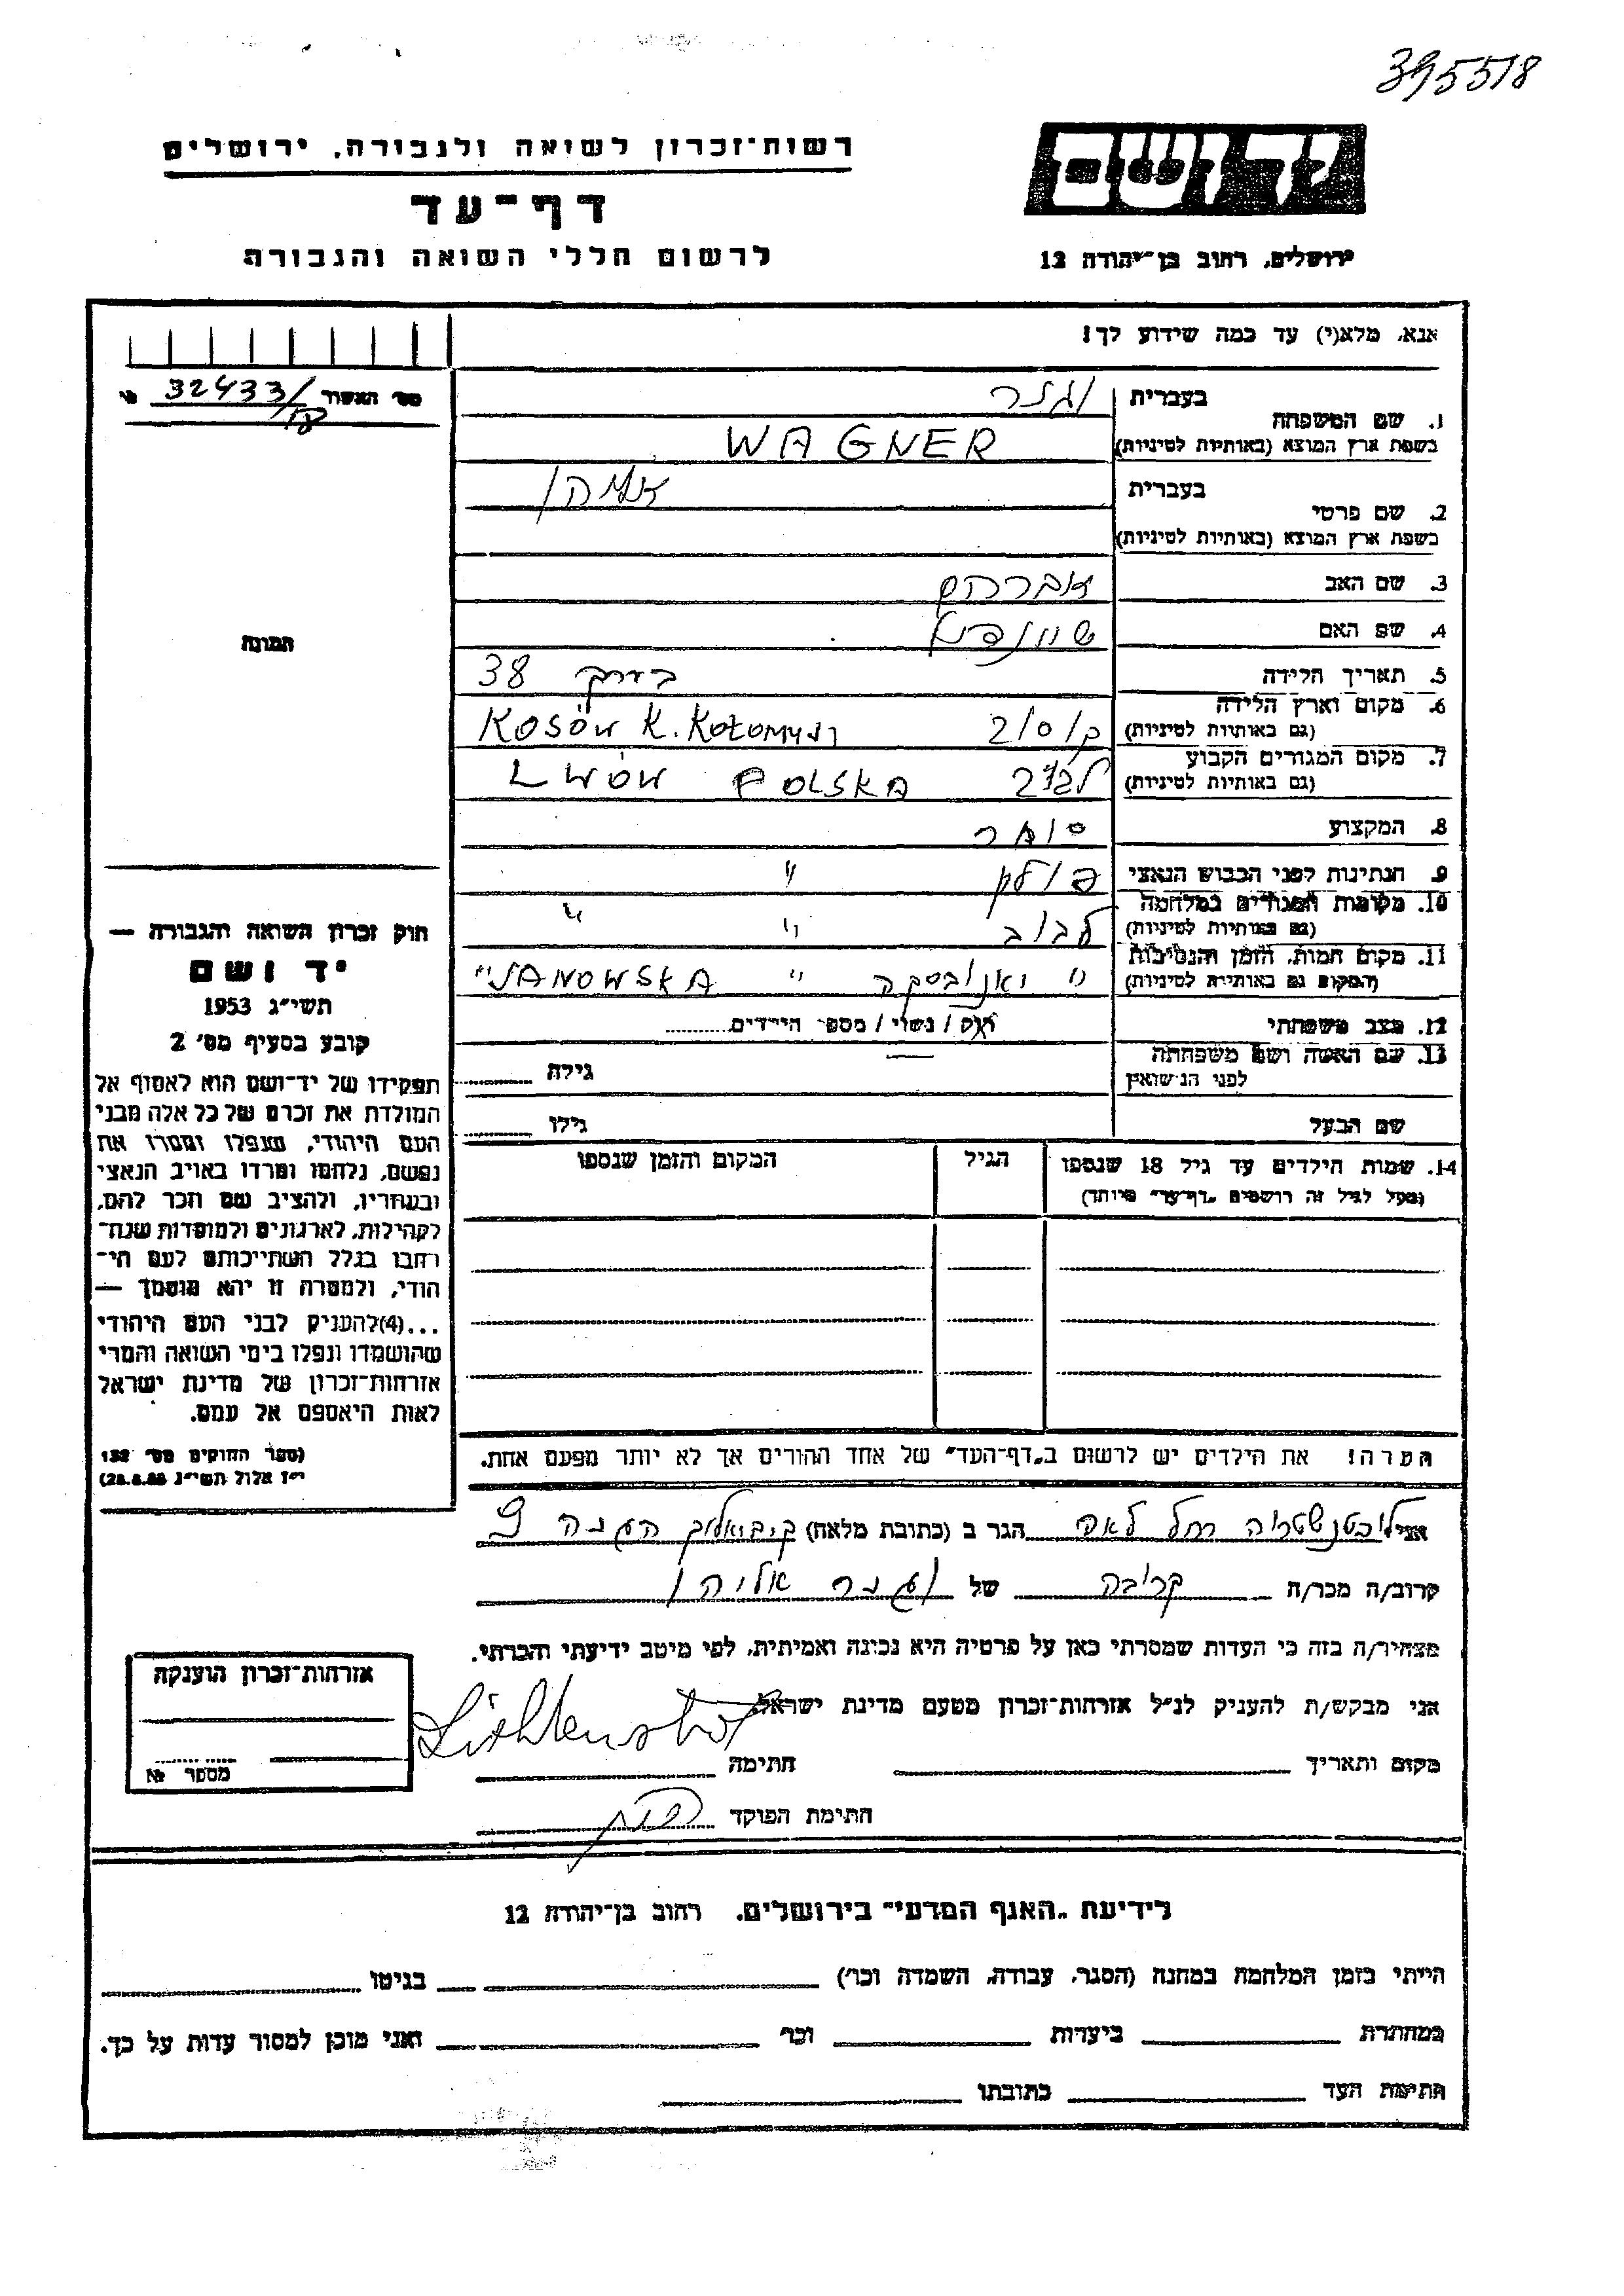 395518
רשות־זכרון לשואה ולגבורה, ירושלים
יד ושם
דף־עד
לרשום חללי השואה והגבורה
ירושלים, רחוב בן־יהודה 12
אנא, מלא(י) עד כמה שידוע לך!
מס׳ האשור 32433/ №
1. שם המשפחה בעברית וגנר
בשפת ארץ המוצא (באותיות לטיניות) WAGNER
2. שם פרטי בעברית אליהו
בשפת ארץ המוצא (באותיות לטיניות)
3. שם האב אברהם
4. שם האם
תמונה
5. תאריך הלידה בערך 38
6. מקום וארץ הלידה
(גם באותיות לטיניות) KOSÓW K. KOŁOMYJI
7. מקום המגורים הקבוע
(גם באותיות לטיניות) LWÓW POLSKA
8. המקצוע סוחר
9. הנתינות לפני הכבוש הנאצי פולק "
10. מקומות המגורים במלחמה
(גם באותיות לטיניות) לבוב " "
11. מקום המות, הזמן והנסיבות
(המקום גם באותיות לטיניות) " יאנובסקה " "JANOWSKA
12. מצב משפחתי רוק / נשוי / מספר הילדים
13. שם האשה ושם משפחתה
לפני הנשואין גילה
שם הבעל גילו
14. שמות הילדים עד גיל 18 שנספו הגיל המקום והזמן שנספו
(מעל לגיל זה רושמים „דף־עד" מיוחד)
חוק זכרון השואה והגבורה —
יד ושם
תשי״ג 1953
קובע בסעיף מס׳ 2
תפקידו של יד־ושם הוא לאסוף אל
המולדת את זכרם של כל אלה מבני
העם היהודי, שנפלו ומסרו את
נפשם, נלחמו ומרדו באויב הנאצי
ובעוזריו, ולהציב שם וזכר להם,
לקהילות, לארגונים ולמוסדות שנח־
רבו בגלל השתייכותם לעם הי־
הודי, ולמטרה זו יהא מוסמך —
...(4)להעניק לבני העם היהודי
שהושמדו ונפלו בימי השואה והמרי
אזרחות־זכרון של מדינת ישראל
לאות היאספם אל עמם.
(ספר החוקים מס׳ 132
י״ז אלול תשי״ג
הערה! את הילדים יש לרשום ב„דף־העד" של אחד ההורים אך לא יותר מפעם אחת.
אני רחל לאה הגר ב (כתובת מלאה) 9
קרוב/ה מכר/ה קרובה של וגנר אליהו
מצהיר/ה בזה כי העדות שמסרתי כאן על פרטיה היא נכונה ואמיתית, לפי מיטב ידיעתי והכרתי.
אני מבקש/ת להעניק לנ״ל אזרחות־זכרון מטעם מדינת ישראל.
מקום ותאריך חתימה
חתימת הפוקד
אזרחות־זכרון הוענקה
מספר №
לידיעת „האגף המדעי" בירושלים, רחוב בן־יהודה 12
הייתי בזמן המלחמה במחנה (הסגר, עבודה, השמדה וכו׳) בגיטו
במחתרת ביערות וכו׳ ואני מוכן למסור עדות על כך.
חתימת העד כתובתו